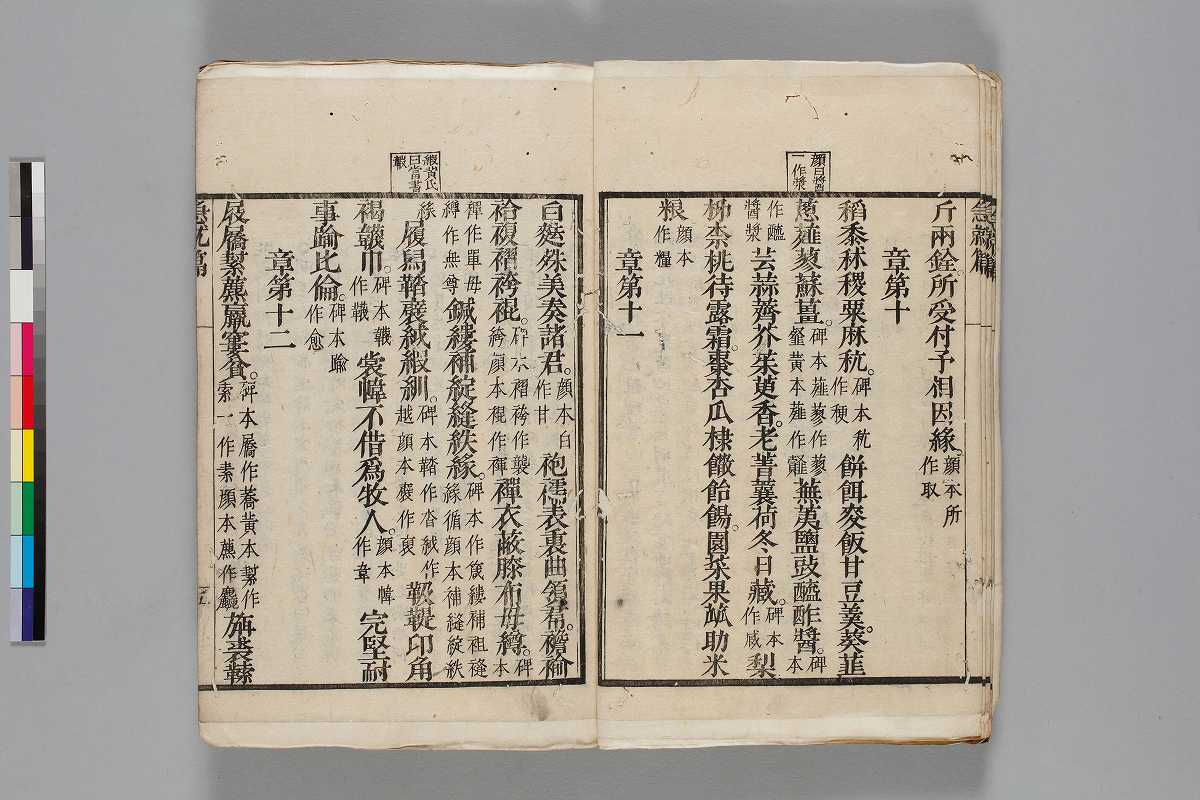 顔曰醬
一作漿
急就篇
斤兩銓。所受付予相因緣。顔本所作取
章第十
稻黍秫稷粟麻秔。碑本秔作稉餅餌麥飯甘豆羹。葵韭
蔥薤蓼蘇薑。碑本薤蓼作蓼黄本薤作韰蕪荑鹽豉醯酢醬。碑本
作醯醬漿芸蒜薺芥茱萸香。老菁蘘荷冬日藏。碑本作咸梨
柹柰桃待露霜。棗杏瓜棣饊飴餳。園菜果蓏助米
粮顔本作糧
章第十一
緞黄氏
曰當書
白䴲殊美奏諸君。顔本白作甘袍襦表裏曲領帬。襜褕
袷複褶袴褌。碑本褶袴作襲袴顔本裩作褌襌衣蔽膝布母繜。碑本
襌作單母繜作無尊鍼縷補綻縫紩緣。碑本作
履舄鞜裒絨緞紃。碑本鞜作沓絨作越顔本裒作裒靸鞮卭角
褐韤巾。碑本韈作韤裳幃不借爲牧人。顔本幃作韋完堅耐
事踰比倫。碑本踰作愈
章第十二
屐屩㡒麤羸窶貧。碑本屩作蕎黄本㡒作索一作素顔本
急就篇